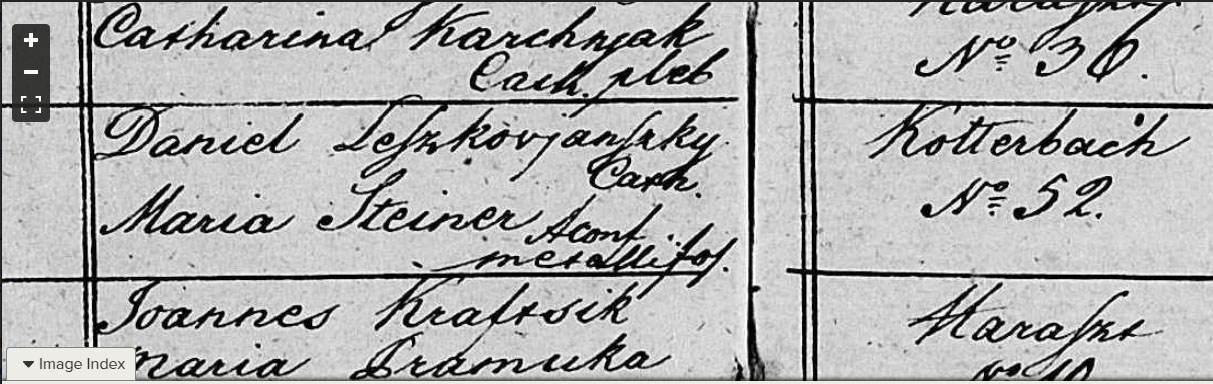 Catharina Karchnyak
Cath. pleb
No 36.
Daniel Leszkovjanszky
Cath.
Maria Steiner Aconf.
metallifos.
Kotterbach
No 52.
Joannes Kraftsik
Maria Pramuka
Haraszt
No 10
Image Index